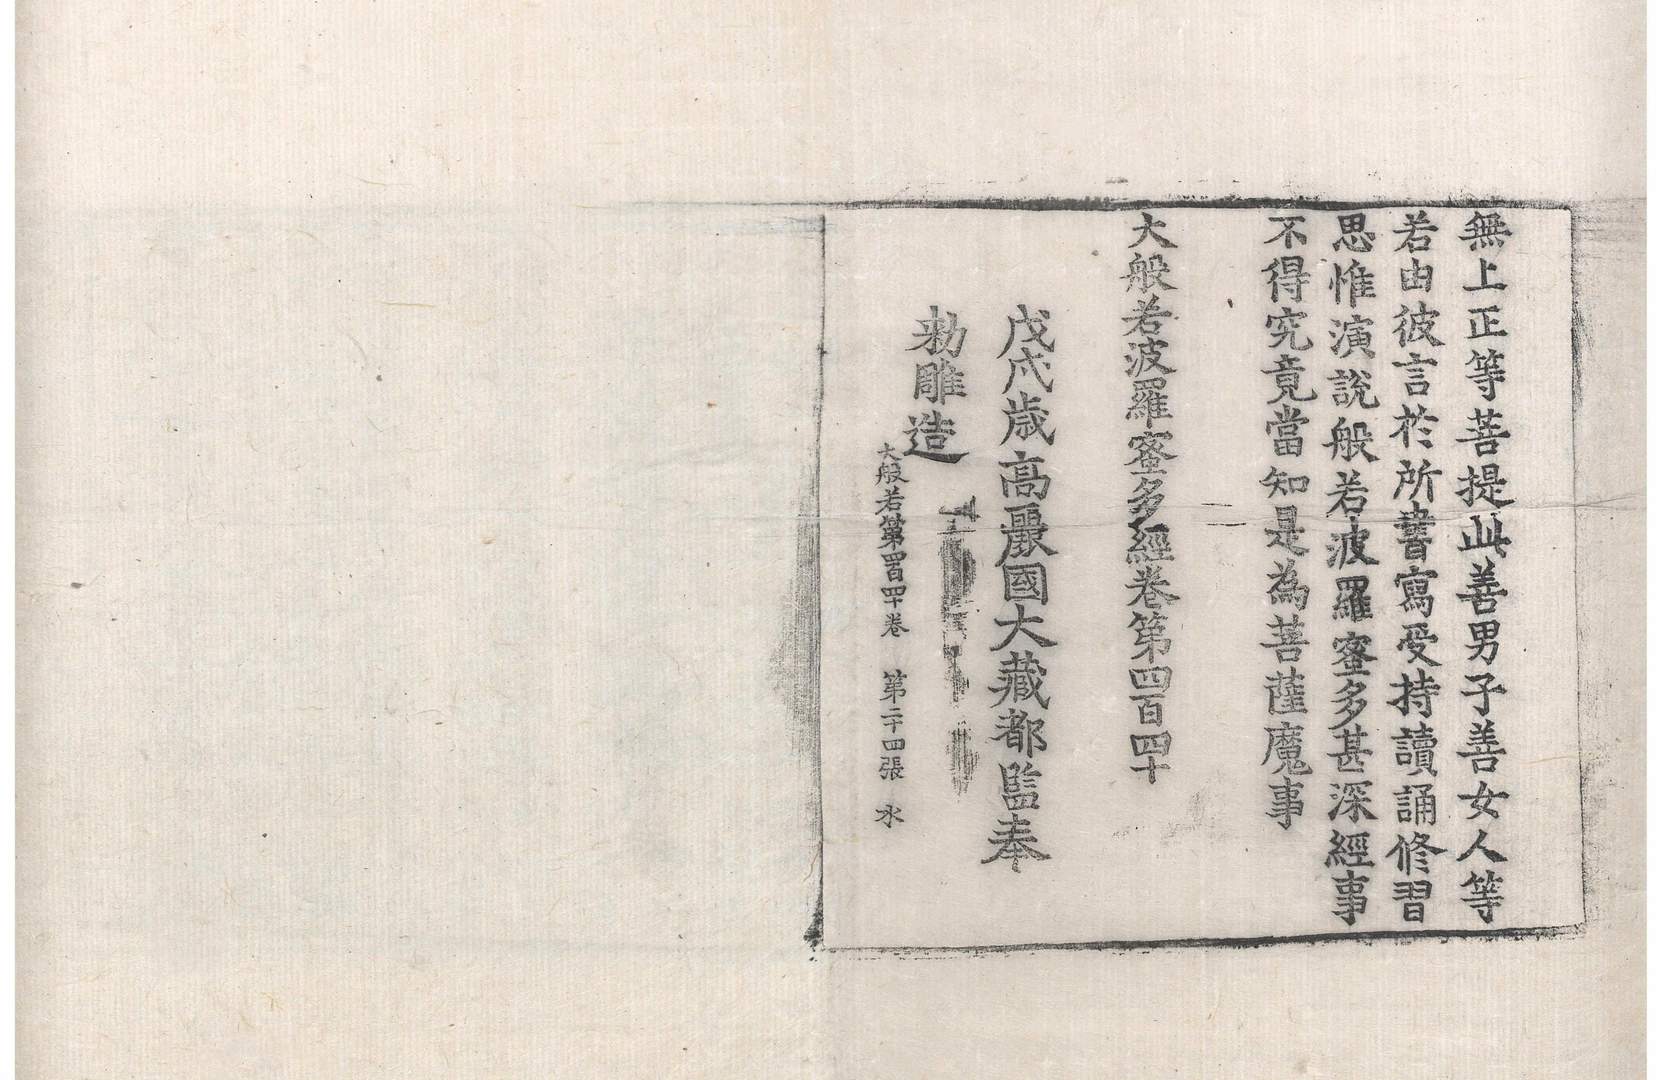 無上正等菩提此善男子善女人等
若由彼言於所書寫受持讀誦修習
思惟演說般若波羅蜜多甚深經事
不得究竟當知是為菩薩魔事
大般若波羅蜜多經卷第四百四十
戊戌歲高麗國大藏都監奉
勅雕造
大般若第四百四十卷 第二十四張 水